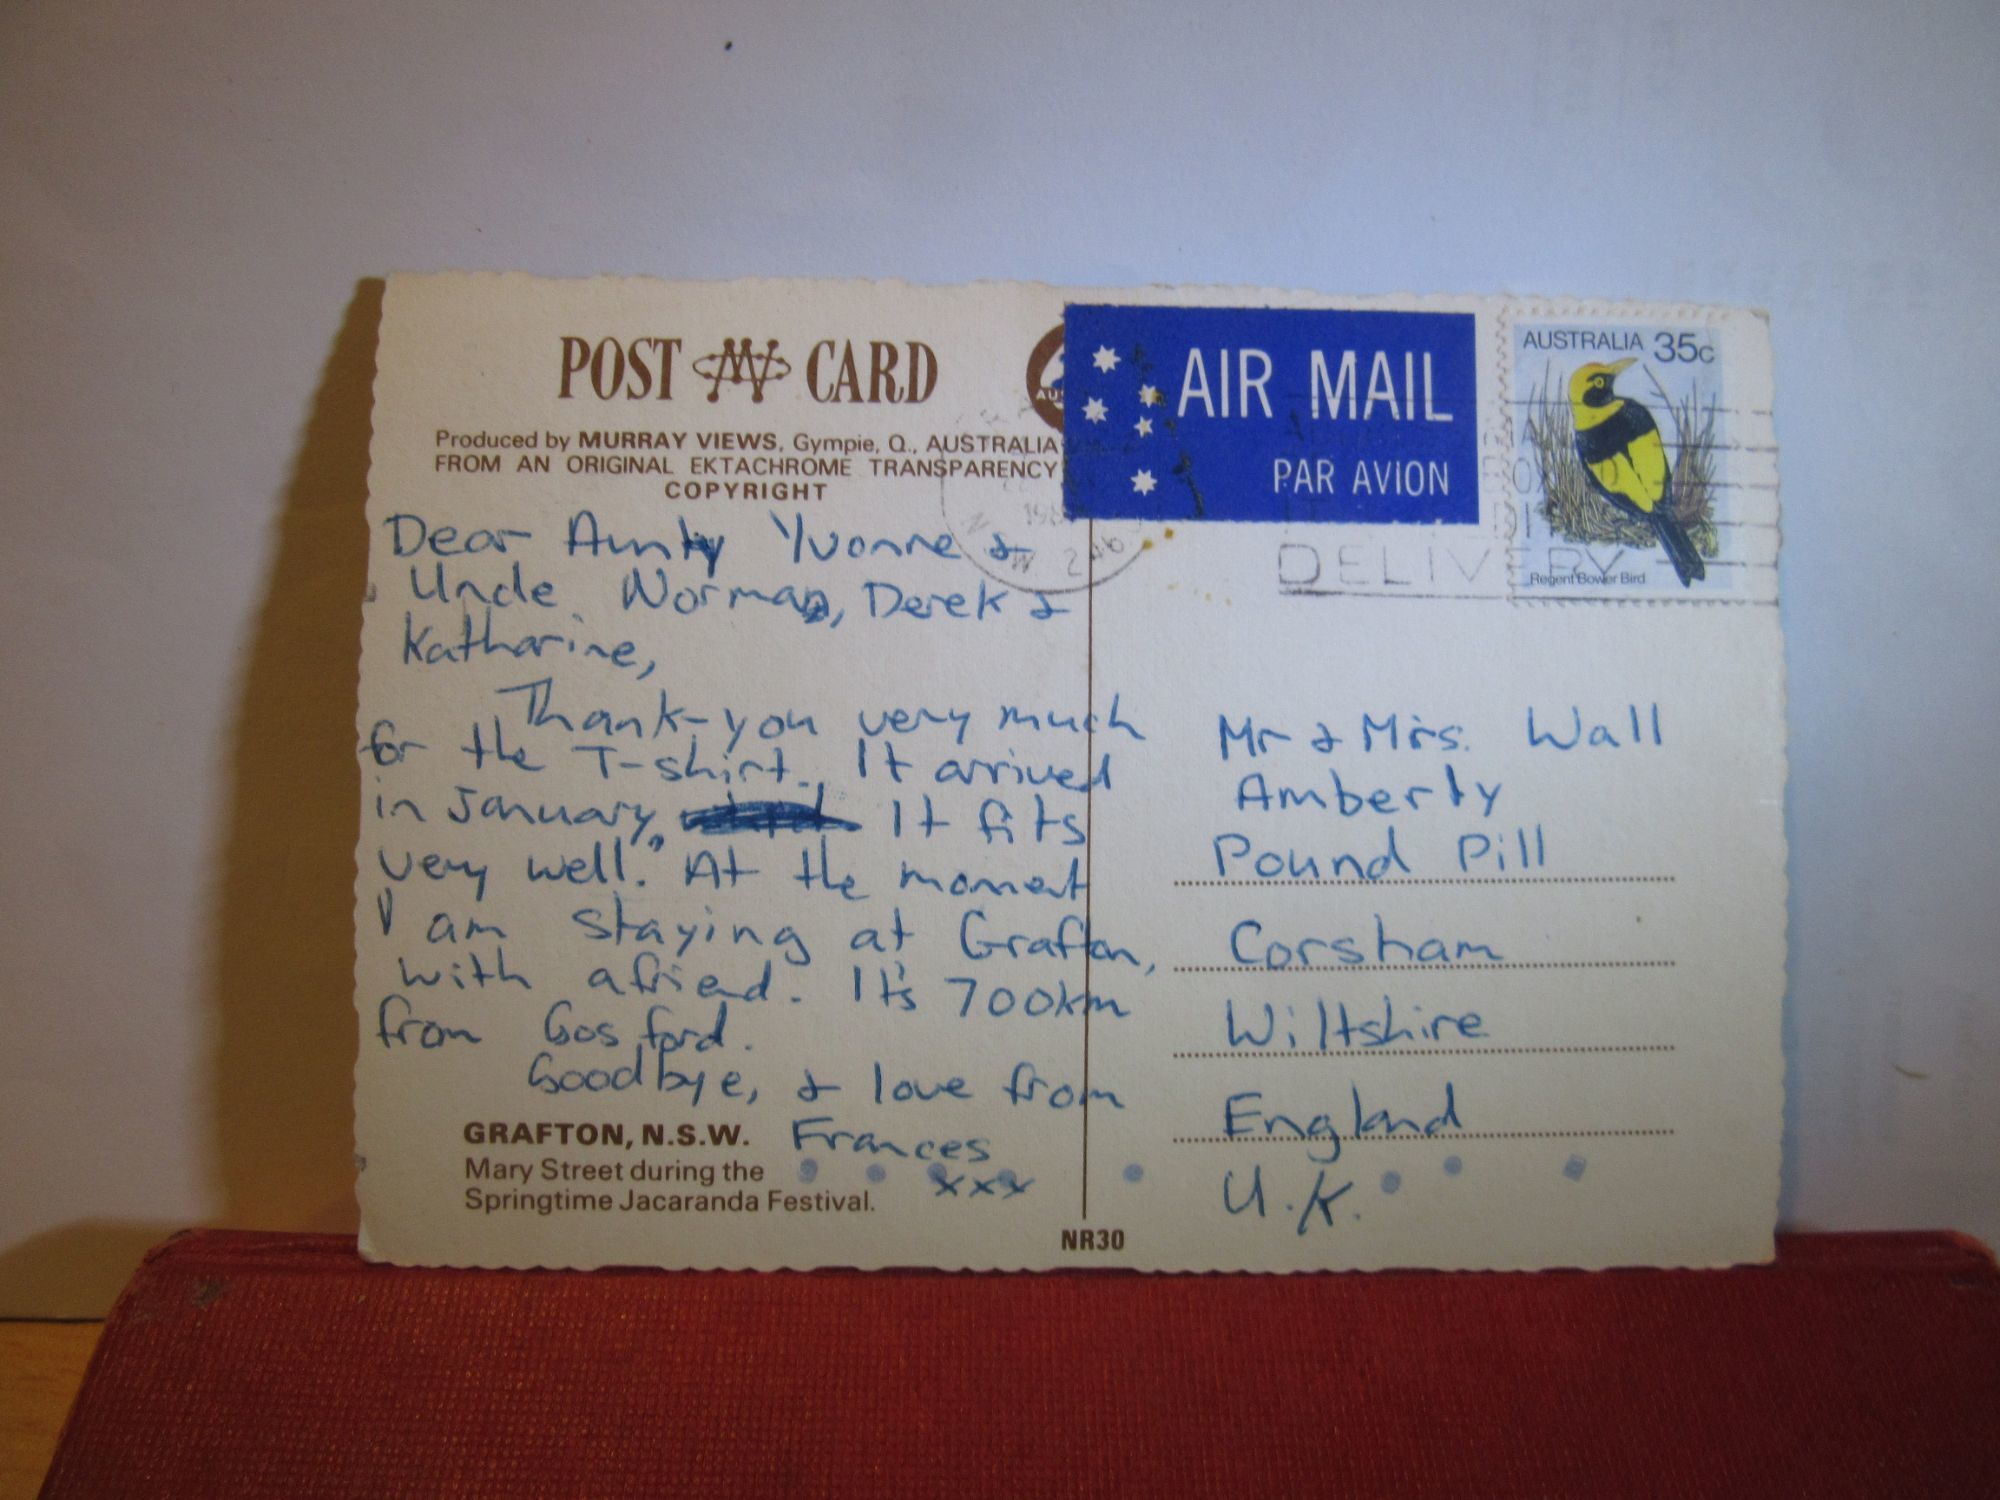 POST CARD
Produced by MURRAY VIEWS, Gympie, Q., AUSTRALIA
FROM AN ORIGINAL EKTACHROME TRANSPARENCY
COPYRIGHT
Dear Aunty Yvonne &
Uncle Norman, Derek &
Katharine,
Thank-you very much
for the T-shirt. It arrived
in January. It fits
very well. At the moment
I am staying at Grafton,
with a friend. It's 700km
from Gosford.
Goodbye, & love from
Frances
xxx
GRAFTON, N.S.W.
Mary Street during the
Springtime Jacaranda Festival.
NR30
AIR MAIL
PAR AVION
AUSTRALIA 35c
Regent Bower Bird
DELIVERY
Mr & Mrs. Wall
Amberly
Pound Pill
Corsham
Wiltshire
England
U.K.